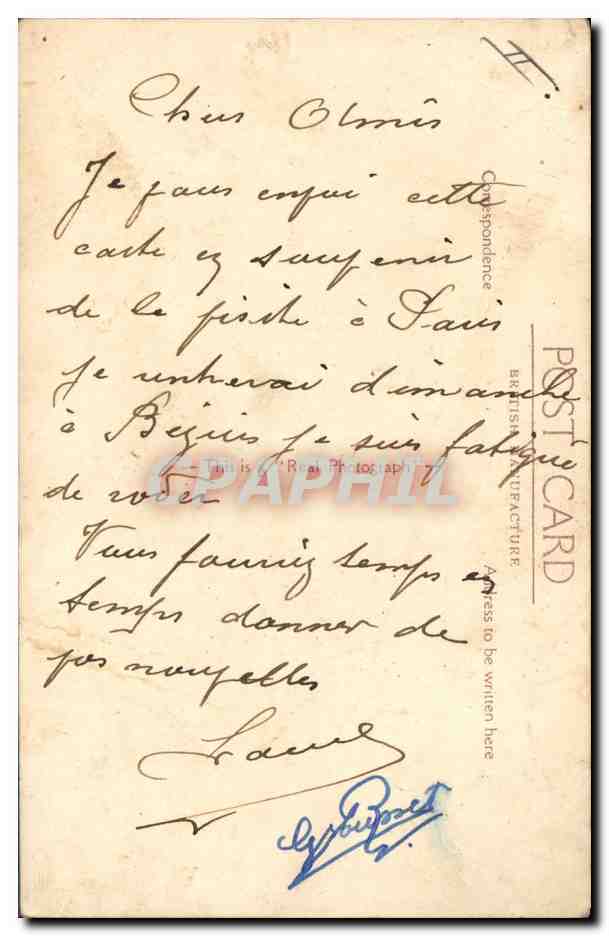 II.
Chers Amis
Je vous envoi cette
carte en souvenir
de la visite à Paris
je rentrerai dimanche
à Béziers je suis fatigué
de roder
Vous pourriez temps en
temps donner de
vos nouvelles
Correspondence
POST CARD
BRITISH MANUFACTURE
Address to be written here
This is a "Real Photograph"
CPAPHIL